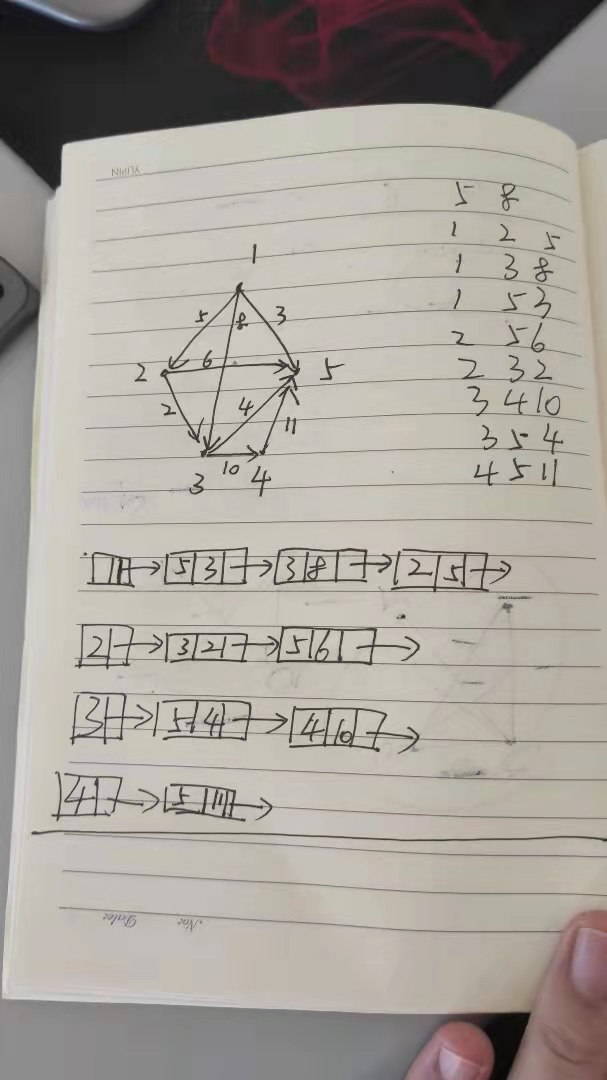 YIJPIN
5 8
1 2 5
1 3 8
1 5 3
2 5 6
2 3 2
3 4 10
3 5 4
4 5 11
1
5 8 3
2 6 5
2 4 11
3 10 4
1 5 3 3 8 2 5
2 3 2 5 6
3 5 4 4 10
4 5 11
Date No.